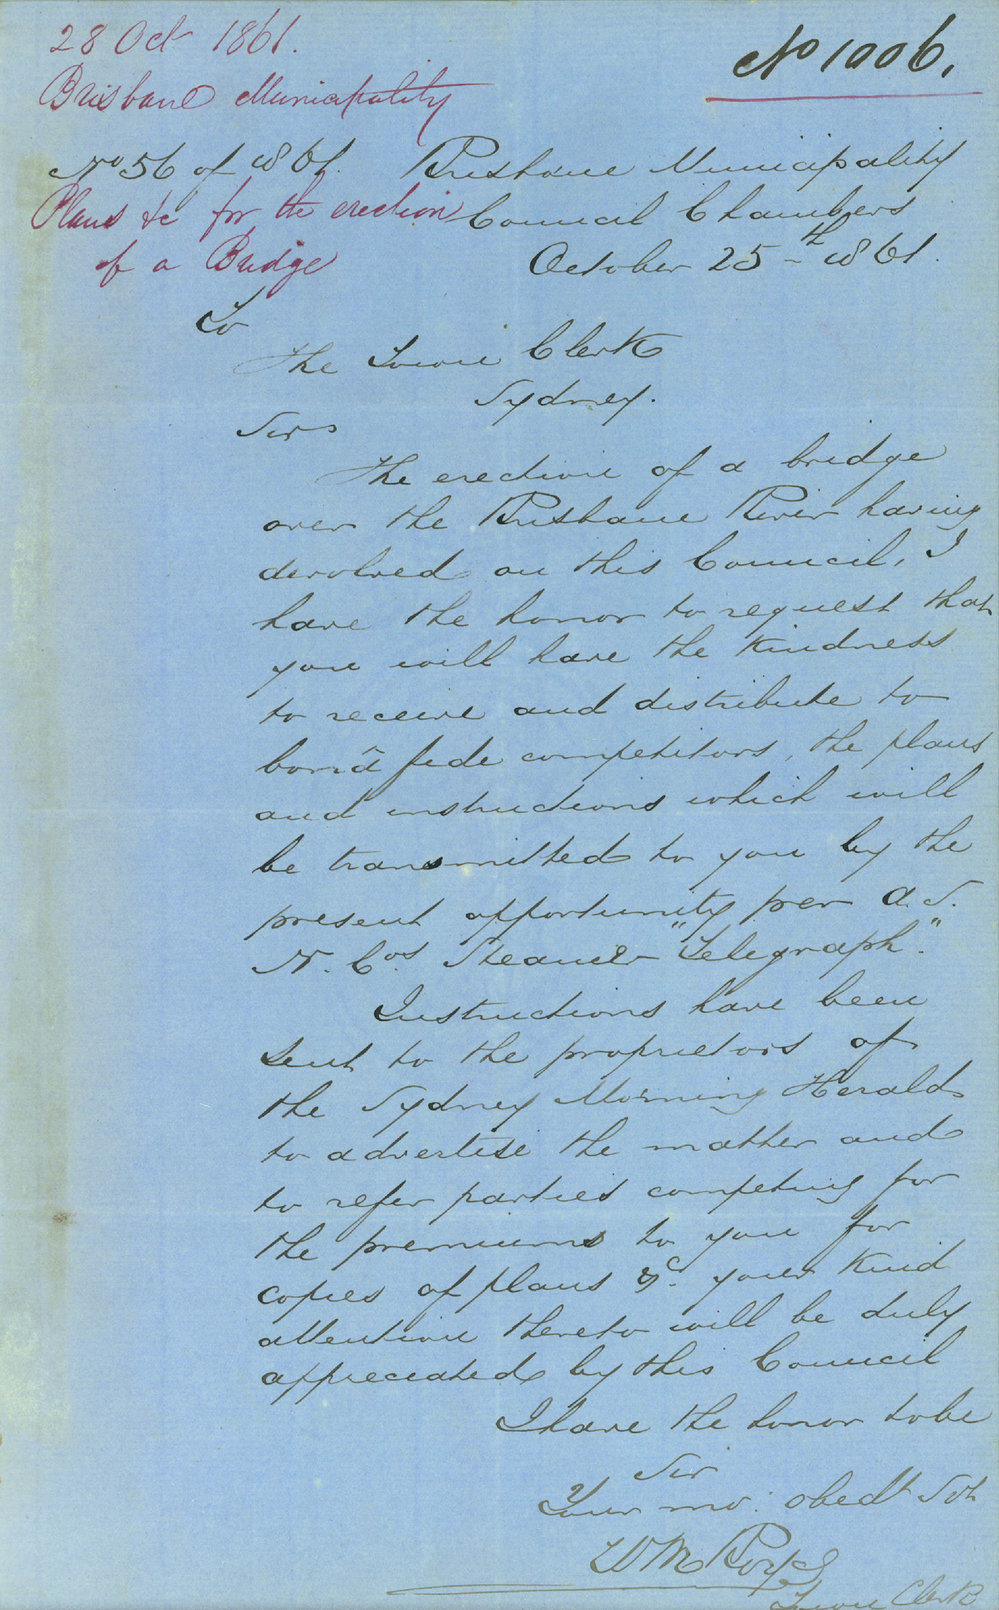 28 Oct 1861.
No 1006.
Brisbane Municipality
No 56 of 1861.
Plans &c for the erection
of a Bridge
Brisbane Municipality
Council Chambers
October 25th 1861.
To
The Town Clerk
Sydney.
Sir
The erection of a bridge
over the Brisbane River having
devolved on this Council, I
have the honor to request that
you will have the kindness
to receive and distribute to
bonâ fide competitors, the plans
and instructions which will
be transmitted to you by the
present opportunity per A. S.
N. Cos. Steamer "Telegraph".
Instructions have been
sent to the proprietors of
the Sydney Morning Herald
to advertise the matter and
to refer parties competing for
the premiums to you for
copies of plans &c. your kind
attention thereto will be duly
appreciated by this Council
I have the honor to be
Sir
Your mo: obedt Svt
W M
Town Clerk